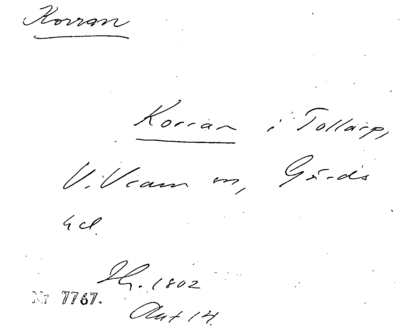 Korran
Korran i Tollarp,
V. Vram sn, Gärds
hd.
Hg. 1802
Nr 7767.
Akt 14.